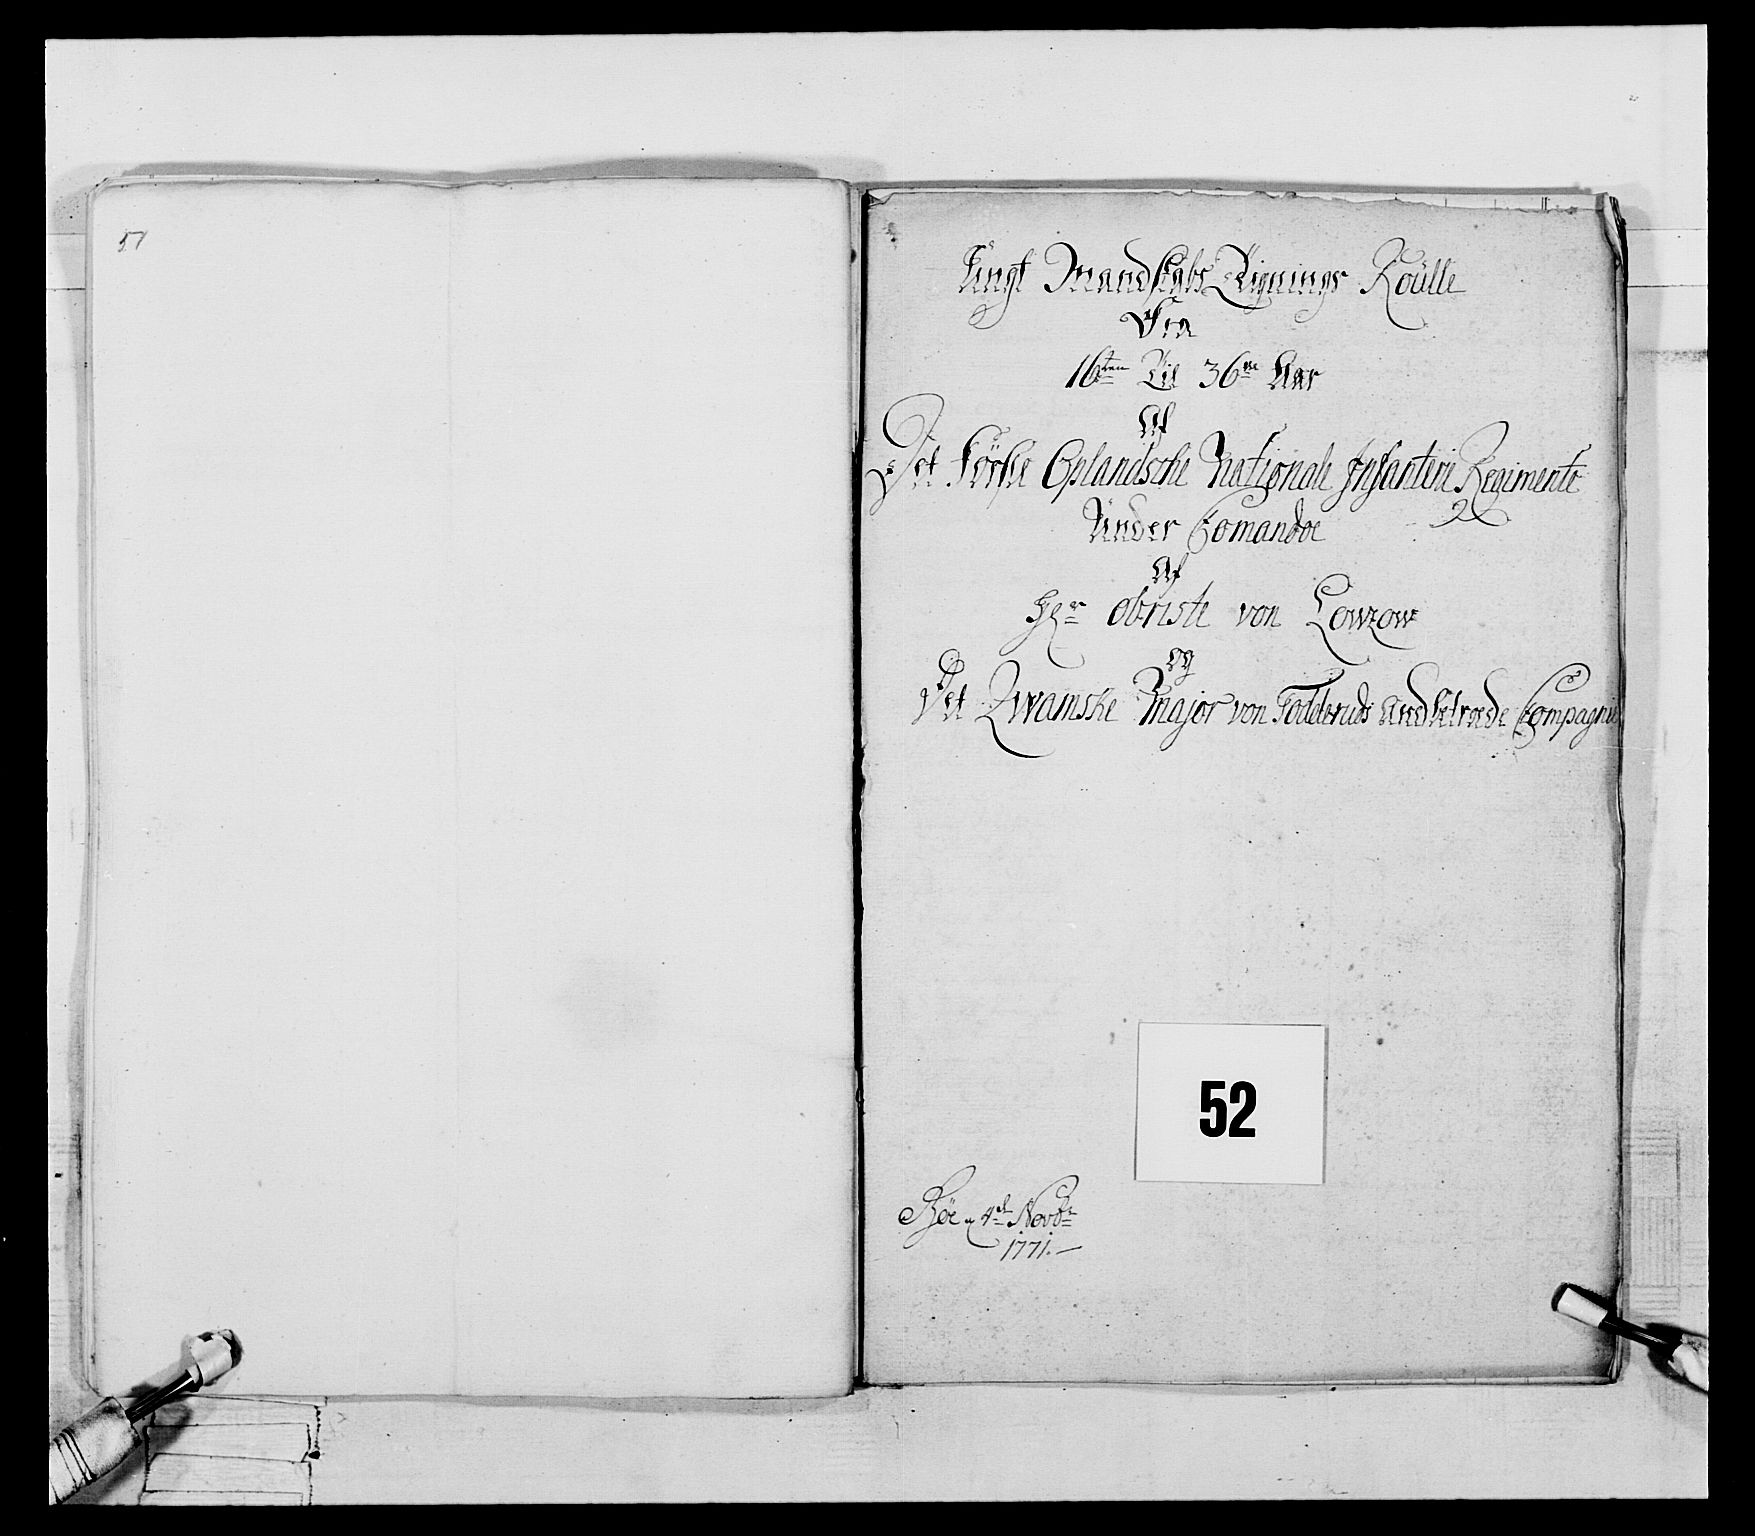 51
Ungt Mandskabs Lignings Roülle
Fra
16ten Til 36te Aar
Af
Det Förste Oplandsche Nationale Infanterie Regimente
Ünder Comandoe
Af
Hr Obriste von Lowzow
og
Det Zwamske Major von Todderuds Andhetroede Compagnie
52
Böe 4de Novbr
1771.—